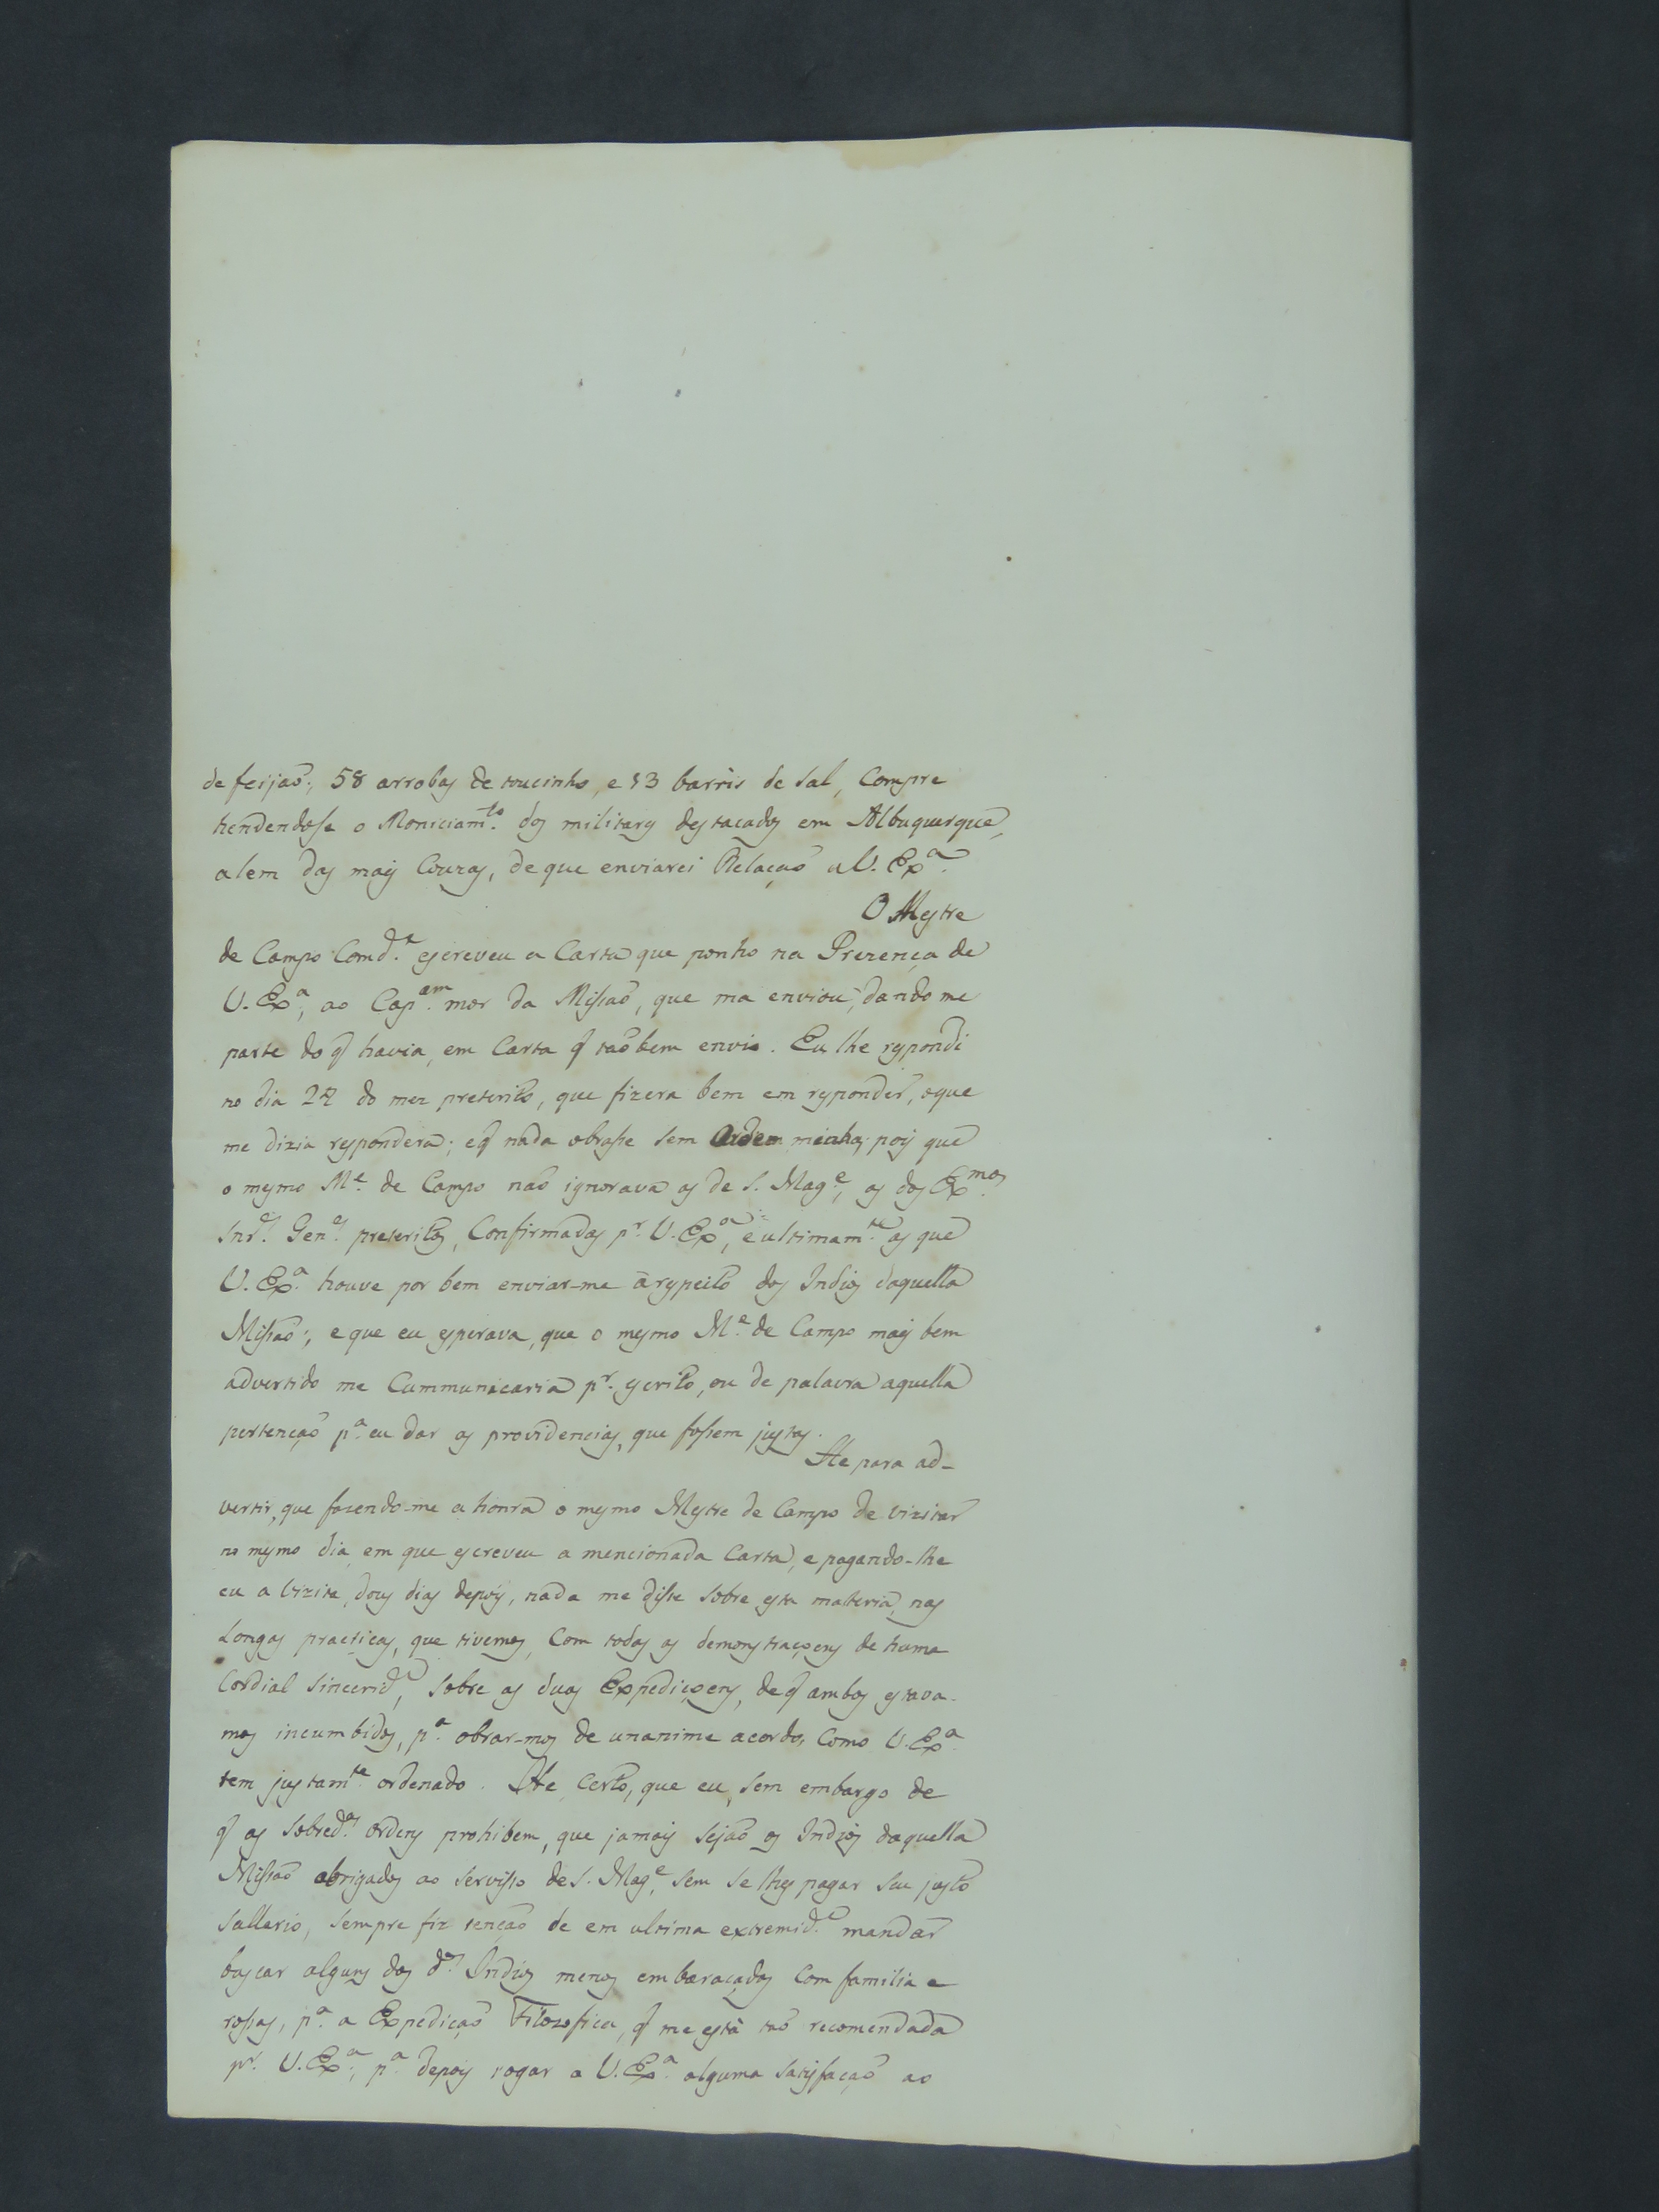 de feijaõ; 58 arrobas de toucinho, e 13 barris de sal, Compre
hendendose o Moniciam.to dos militares destacados em Albuquerque,
alem das mais Couzas, de que enviarei Relaçaõ a V. Ex.a
O Mestre
de Campo Comd.e escreveu a Carta que ponho na Prezença de
V. Ex.a, ao Cap.am mor da Missaõ, que ma enviou, dando me
parte do q havia, em Carta q taõbem envio. Eu lhe respondi
no dia 24 do mez preterito, que fizera bem em responder, o que
me dizia respondera; e q nada obrasse sem Ordem minha; pois que
o mesmo M.e de Campo naõ ignorava as de S. Mag.e, as dos Ex.mos
Snr.es Gen.es preteritos, Confirmadas p.r V. Ex.a, e ultimam.te as que
V. Ex.a houve por bem enviar-me a respeito dos Indios daquella
Missaõ; e que eu esperava, que o mesmo M.e de Campo mais bem
advertido me Cummunicaria p.r escrito, ou de palavra aquella
pertençaõ p.a eu dar as providencias, que fossem justas.
He para ad-
vertir, que fazendo-me a honra o mesmo Mestre de Campo de vizitar
no mesmo dia em que escreveu a mencionada Carta, e pagando-lhe
eu a vizita, dous dias depois, nada me disse sobre esta materia, nas
Longas practicas, que tivemos, Com todas as demonstraçoens de huma
Cordial sincerid.e, sobre as duas Expediçoens, de q ambos estava-
mos incumbidos, p.a obrar-mos de unanime acordo, Como V. Ex.a
tem justam.te ordenado. He Certo, que eu, sem embargo de
q as sobred.as ordens prohibem, que jamais sejaõ os Indios daquella
Missaõ obrigados ao servisso de S. Mag.e, sem se lhes pagar seu justo
sallario, sempre fiz tençaõ de em ultima extremid.e mandar
buscar alguns dos d.os Indios menos embaraçados Com familia e
rossas, p.a a Expediçaõ Filozofica, q me está taõ recomendada
p.r V. Ex.a, p.a depois rogar a V. Ex.a alguma satisfaçaõ ao